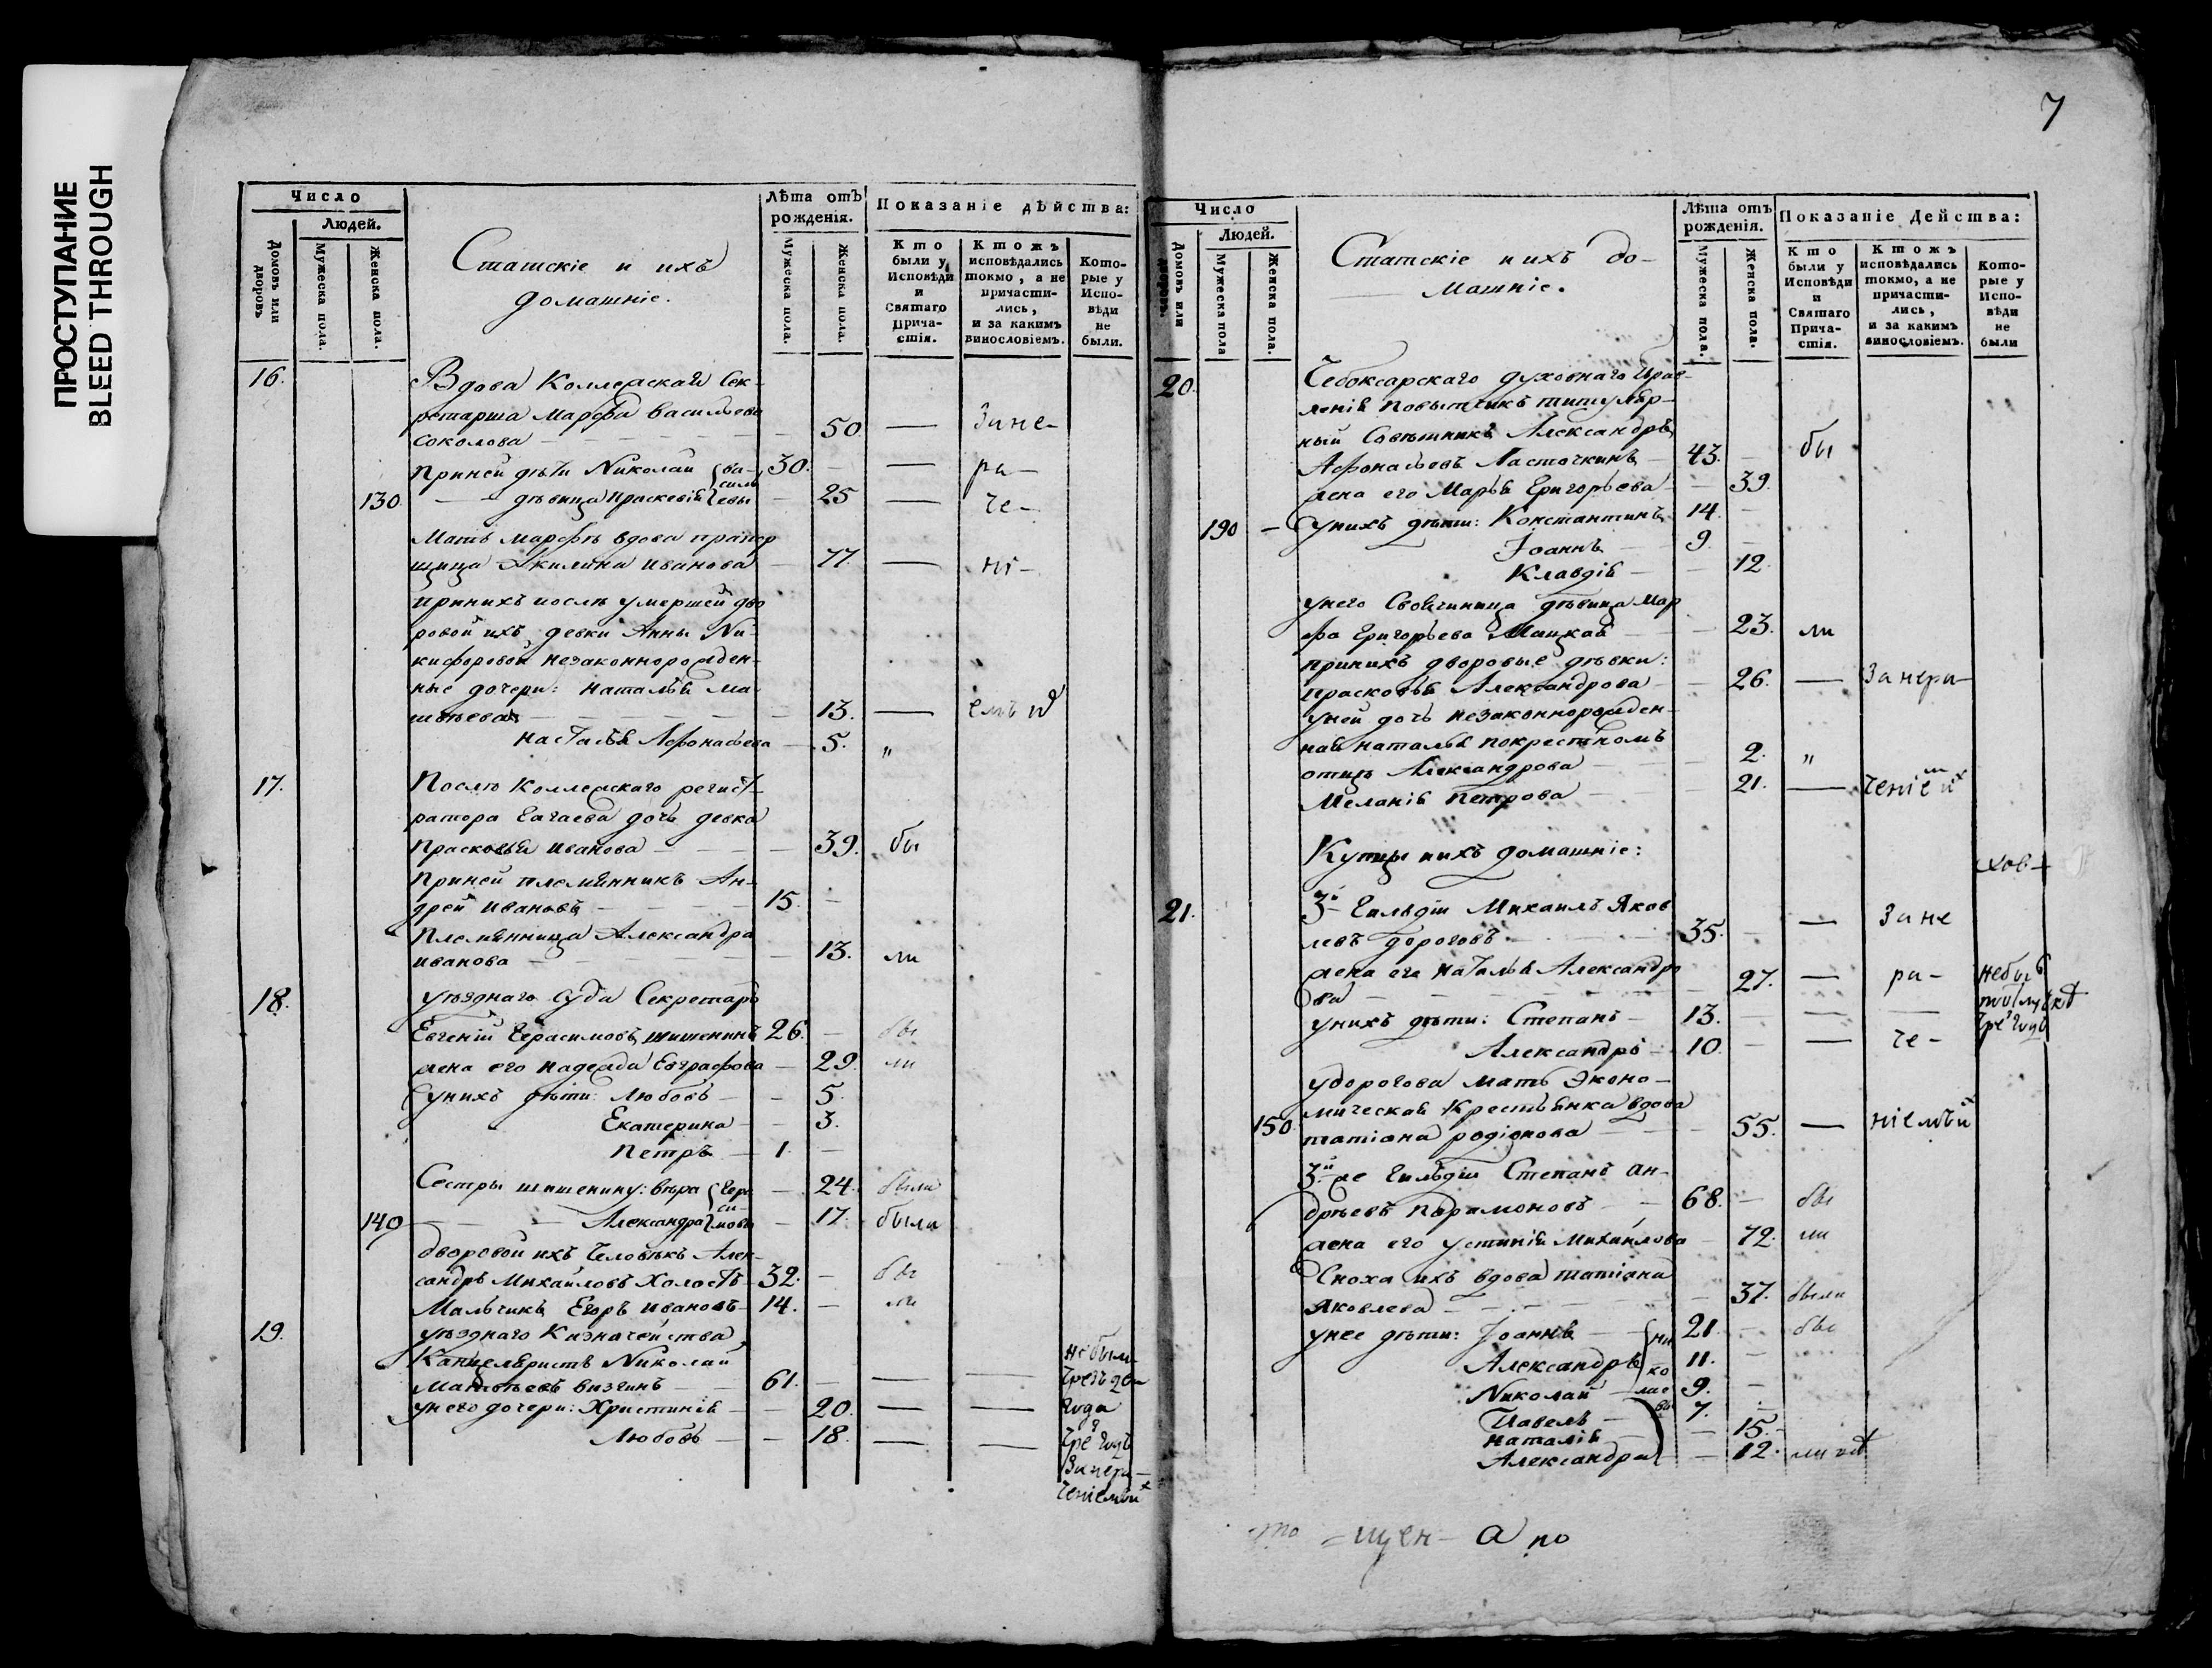 ПРОСТУПАНИЕ
BLEED THROUGH
7
Число
Людей.
Домовъ или дворовъ
Мужеска пола.
Женска пола.
Статскіе и ихъ
домашніе.
Лѣта отъ
рожденія.
Мужеска пола.
Женска пола.
Показаніе дѣйства:
Кто были у Исповѣди и Святаго Причастія.
Ктожъ исповѣдались токмо, а не причастились, и за какимъ винословіемъ.
Которые у Исповѣди не были.
16. Вдова Коллежскаго Сек-
ретарша Марѳа Васильева
Соколова 50. — Зане-
При ней дѣти Николай Ва- 30. — ра-
130 — дѣвица Праскевія сильевы 25 — че-
Мать Марѳы вдова прапор
щица Акилина Иванова 77 — ні-
При нихъ послѣ умершей дво
ровой ихъ девки Анны Ни-
кифоровой незаконнорожден-
ные дочери: Наталья Ма
13. — емъ
Настасья Афонасьева 5. „
17. Послѣ Коллежскаго регист-
ратора дочь девка
Прасковья Иванова 39. бы
При ней племянникъ Ан-
дрей Ивановъ 15. —
Племянница Александра
Иванова 13. ли
18. Уѣзднаго Суда Секретарь
Евгеній Герасимовъ Шишенинъ 26. — бы
жена его Надежда Евграфова 29. ли
У нихъ дѣти: Любовь 5.
Екатерина 3.
Петръ 1. —
Сестры Шишенину: Вѣра Гера 24. были
140 — Александра симовы 17. были
Дворовой ихъ человѣкъ Алек-
сандръ Михайловъ холостъ 32. — бы
Мальчикъ Егоръ Ивановъ 14. — ли
19. Уѣзднаго Казначейства
Канцеляристъ Николай
61. — — —
У него дочери: Христинія 20. — —
Любовь 18. — —
небыли
года
Занера-
ченіемъ
Число
Людей.
Домовъ или дворовъ.
Мужеска пола
Женска пола.
Статскіе и ихъ до-
машніе.
Лѣта отъ
рожденія.
Мужеска пола.
Женска пола.
Показаніе Действа:
Кто были у Исповѣди и Святаго Причастія.
Ктожъ исповѣдались токмо, а не причастились, и за какимъ винословіемъ.
Которые у Исповѣди не были
20. Чебоксарскаго духовнаго Прав-
ленія Повытчикъ титуляр-
ный Совѣтникъ Александръ
Афонасьевъ Ласточкинъ 43. — бы
жена его Марья Григорьева 39.
190 — У нихъ дѣти: Константинъ 14. —
Іоаннъ 9. —
Клавдія 12.
У него Своячиница дѣвица Мар
ѳа Григорьева 23. ли
При нихъ дворовые дѣвки:
Прасковья Александрова 26. — Занера-
У ней дочь незаконнорожден-
ная Наталья по крестномъ
отцѣ Александрова 2. „
Меланія Петрова 21. — ченіем
Купцы и ихъ домашніе:
21. 3й Гильдіи Михаилъ Яков
левъ Дороговъ 35. — — Зане
жена его Наталья Александро
ва 27. — ра-
У нихъ дѣти: Степанъ 13. — —
Александръ 10. — — че-
У Дорогова мать Эконо-
мическая Крестьянка вдова
150. Татіана Родіонова 55. — ніемъ
3й же Гильдіи Степанъ Ан-
дрѣевъ Парамоновъ 68. — бы
жена его Устинія Михайлова 72. ли
Сноха ихъ вдова Татіана
Яковлева 37. были
У нее дѣти: Іоаннъ 21. — бы
Александръ 11. —
Николай 9. —
Павелъ 7.
Наталія 15.
Александра 12. ли
Николаевы
небыъ
= щен — а по